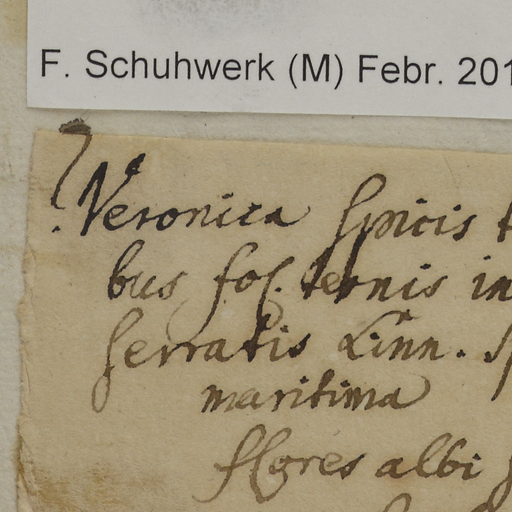 F. Schuhwerk (M) Febr. 201
? Veronica spicis t
bus fol. ternis in
serratis Linn. Sp
maritima
flores albi